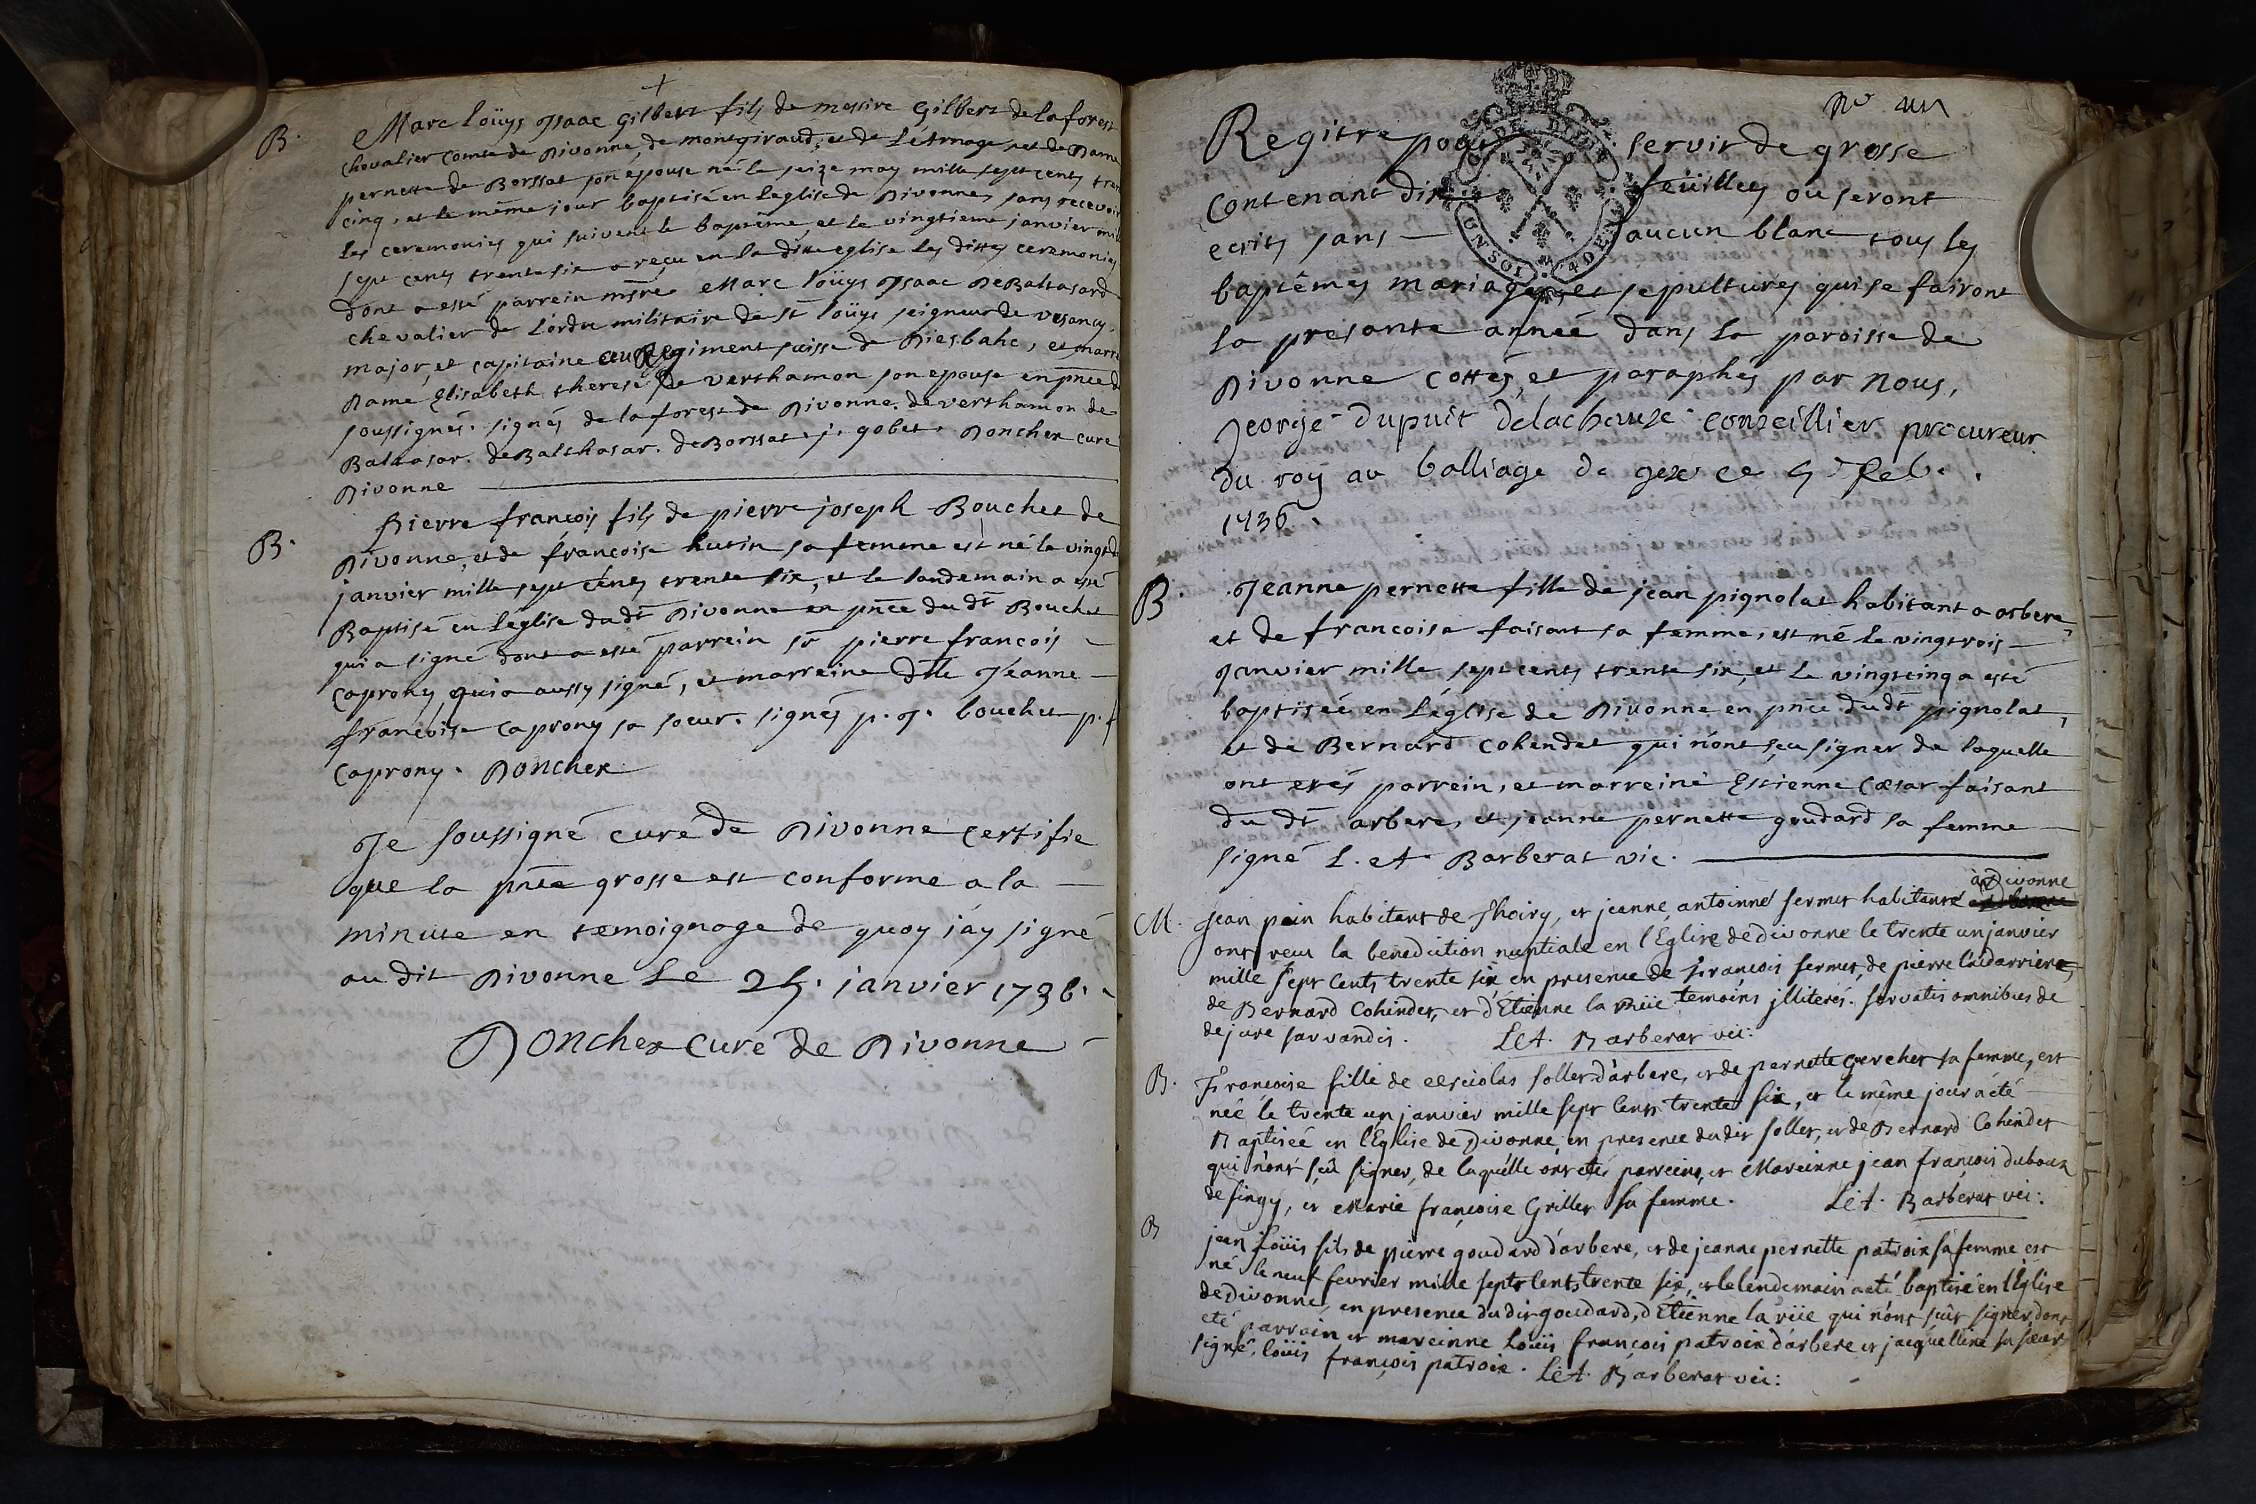 B. Marc loüys Isaac gilbert fils de messire gilbert de la forest
chevalier comte de Divonne, de montgiraud, et de L'étrnage, et de Dame
pernette de Borssat son epouse né le seize may mille sept cents tren
cinq, et le même jour baptisé en Leglise de Divonne, sans recevoir
les ceremonies qui suivent le baptême, et le vingtieme janvier mil
sept cents trente six a reçu en la ditte eglise les dittes ceremonies
dont a esté parrein msre Marc loüys Isaac De Baltasard
chevalier de L'ordre militaire de st loüys seigneur de vesancy
major, et capitaine au Regiment suisse de Diesbahc, et marre
Dame Elisabeth therese de verthamon son epouse en pnce d
soussignés. signés de la forest de Divonne. de verthamon de
Baltasar. de Balthasar. de Borssat. j. gobet. Donchex curé
Divonne
B. Pierre françois fils de pierre joseph Bouchet de
Divonne, et de françoise hutin sa femme est né le vingt d
janvier mille sept cents trente six, et le landemain a esté
Baptisé en Leglise dudt Divonne en pnce du dt Bouchet
qui a signé dont a esté parrein sr pierre françois
caprony, qui a aussy signé, et marreine dlle Jeanne
françoise caprony sa soeur. signés p. J. bouchet p. f
caprony. Donchex
Je soussigné curé de Divonne certifie
que la pnte grosse est conforme a la
minute en temoignage de quoy j'ay signé
au dit Divonne Le 25. janvier 1736.
Donchex curé de Divonne
No un
Regitre pour servir de grosse
contenant dix feüillets ou seront
ecrits sans aucun blanc tous les
baptêmes mariages et sepultures qui se fairont
la presante année dans la paroisse de
Divonne cottés, et paraphés par Nous,
george dupuit delachaux conseillier procureur
du roy au balliage de gex ce 5e Feb.
1736.
B. Jeanne pernette fille de jean pignolat habitant a arbere,
et de francoise faisant sa femme, est né le vingtrois
janvier mille sept cents trente six, et le vingtcinq a esté
baptisée en L'église de Divonne en pnce du dt pignolat,
et de Bernard cohendet qui n'ont sçu signer de laquelle
ont etés parrein, et marreine Estienne Cæsar faisant
du dt arbere, et jeanne pernette goudard sa femme
signé L. A. Barberat vic.
à Divonne
M. Jean pain habitant de Thoiry, et jeanne antoinne fermet habitante
ont reçu la benediction nuptiale en l'Eglise de Divonne le trente un janvier
mille sept cents trente six en presence de François fermet, de pierre
de Bernard Cohindet, et d'Etienne la Rüe temoins jlliterés. servatis omnibus de
de jure servandis. L.A. Barberat vic:
B. Françoise fille de Nicolas sollet d'arbere, et de pernette Gerchet sa femme, est
née le trente un janvier mille sept cents trente six, et le même jour a été
Baptiseé en l'Église de Divonne en presence dudit sollet, et de Bernard Cohindet
qui n'ont sçû signer, de laquelle ont étés parrein, et Mareinne jean françois duboux
de singy, et Marie françoise Grillet sa femme. L.A. Barberat vic:
B jean Loüis fils de pierre goudard d'arbere, et de jeanne pernette patroix sa femme est
né le neuf fevrier mille sept cents trente six, et le lendemain a été baptisé en l'Église
de Divonne, en presence dudit goudard, d'Etienne la rüe qui n'ont sçût signer, dont
eté parrain et mareinne Loüis françois patroix d'arbere et jacquelline sa sœur
signé, loüis françois patroix. L.A. Barberat vic: